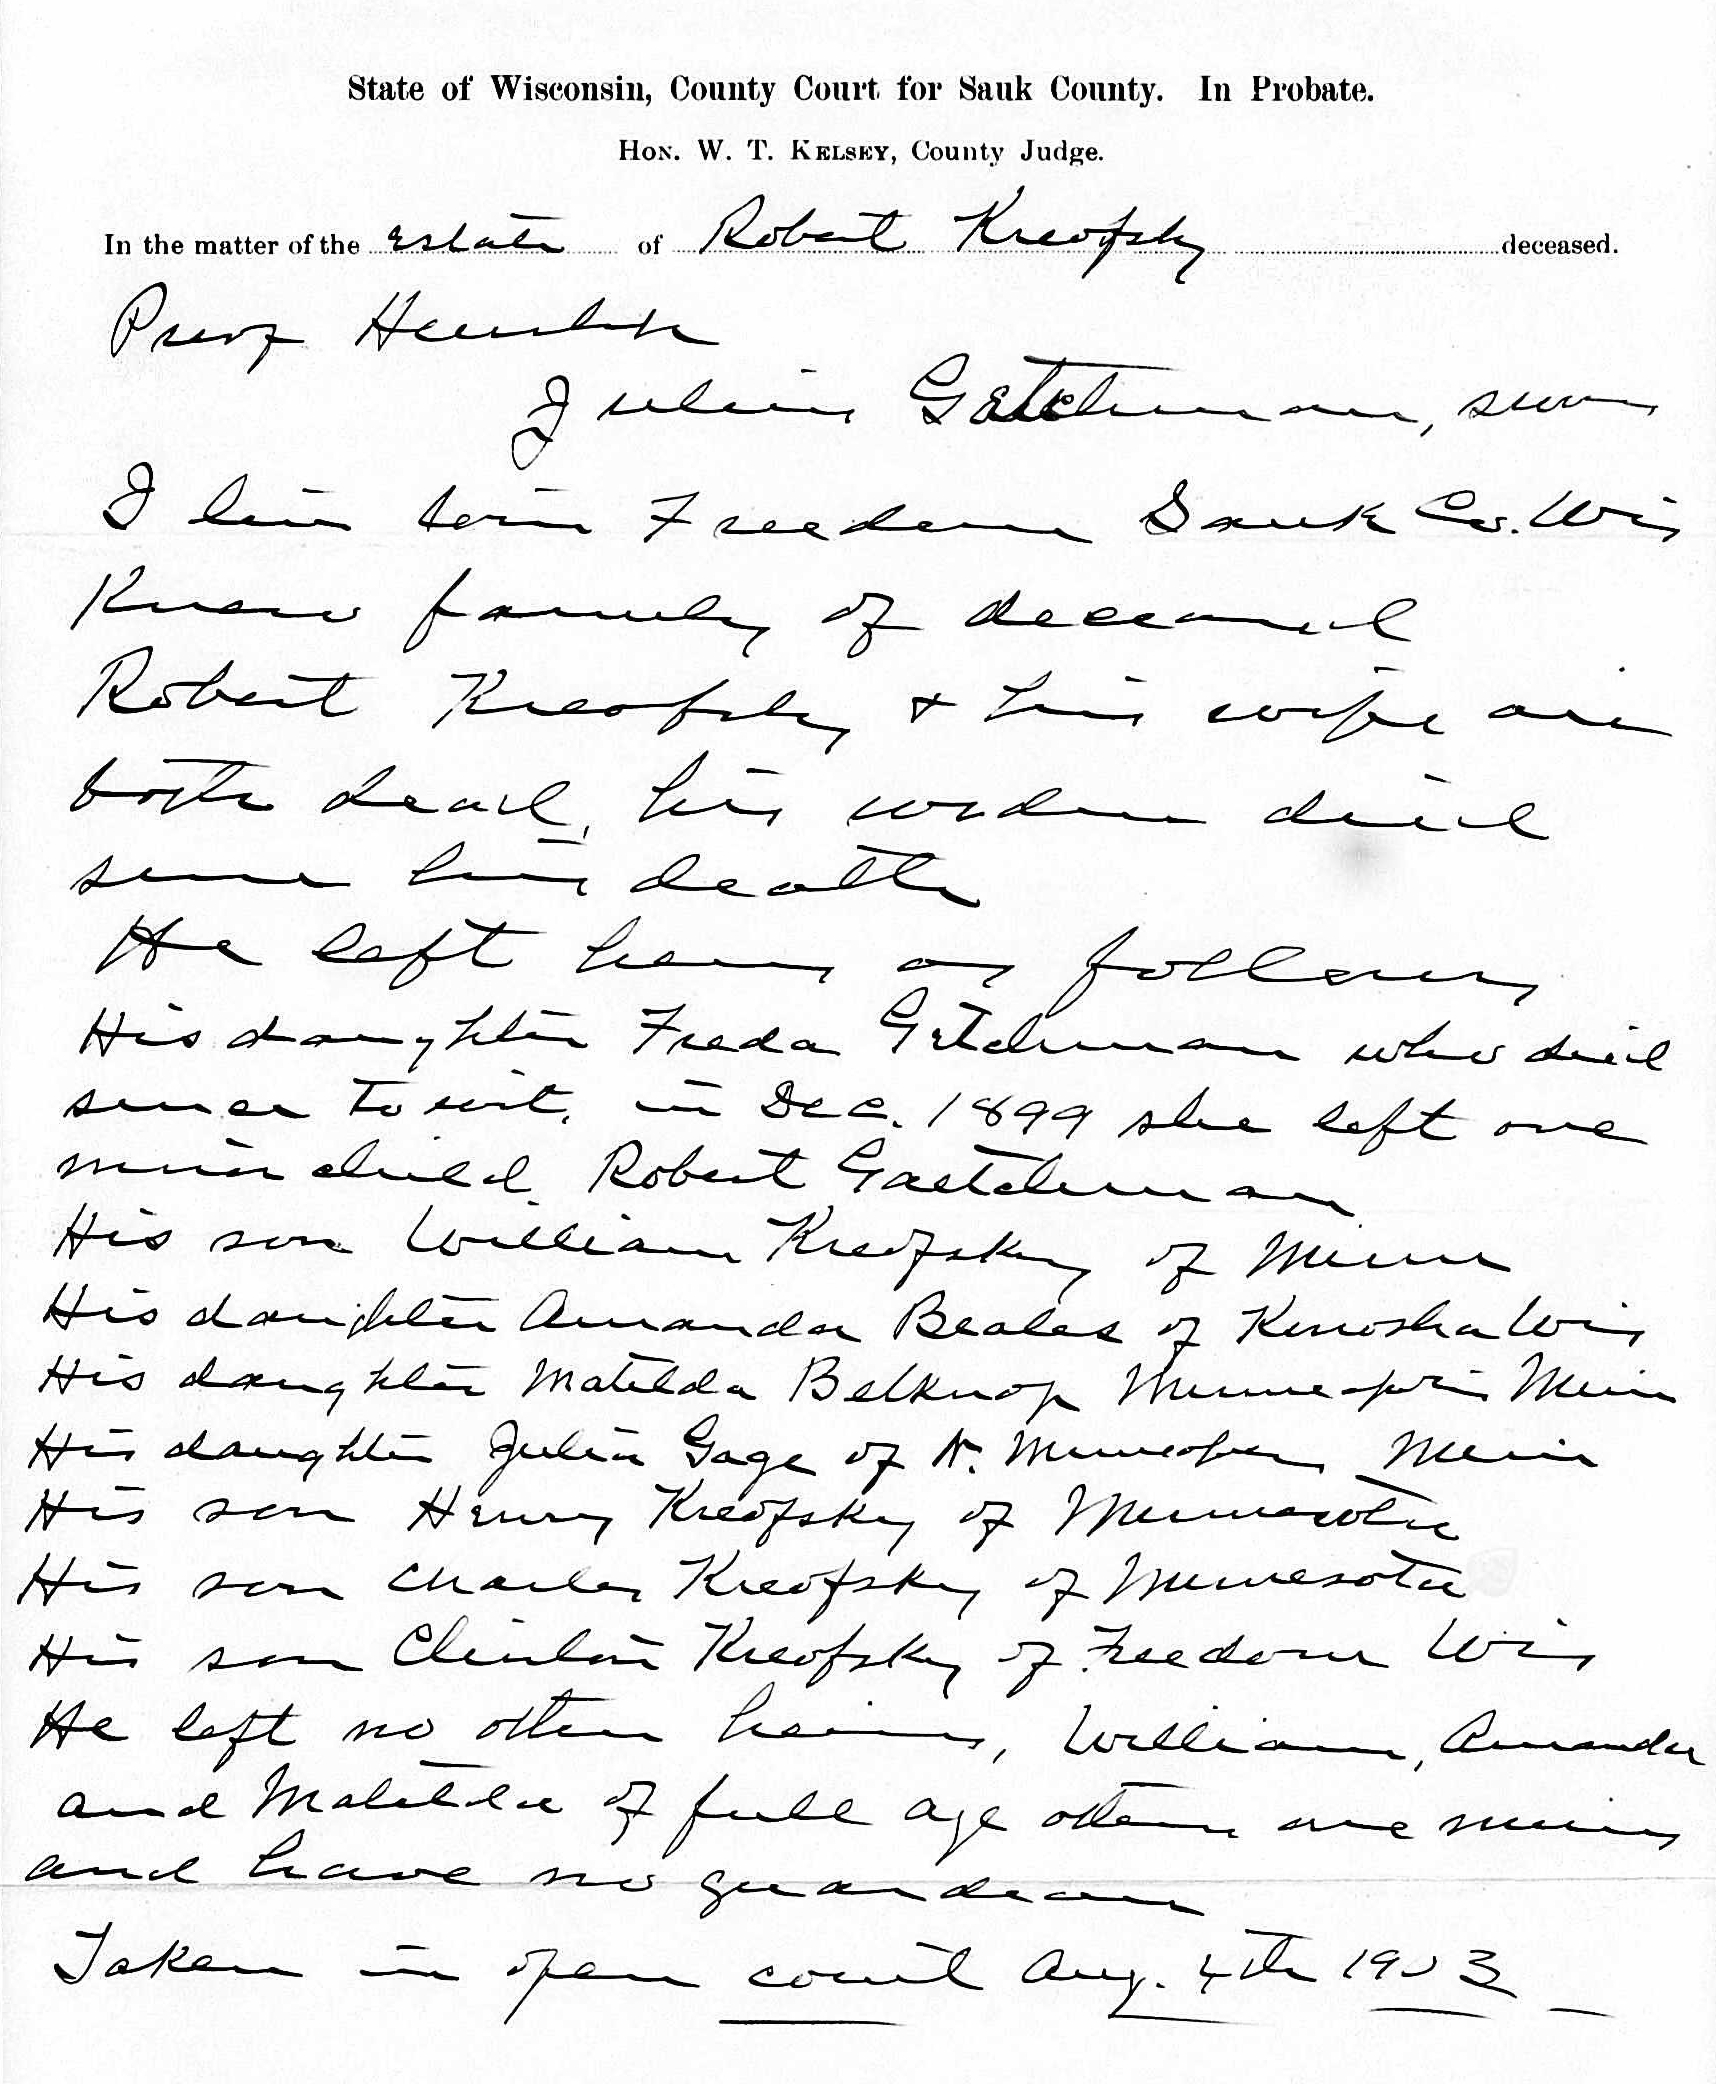 State of Wisconsin, County Court for Sauk County. In Probate.
Hon. W. T. Kelsey, County Judge.
In the matter of the estate of Robert Kreofsky deceased.
Proof Heirship
Julius Getchman, sworn
I live town Freedom Sauk Co. Wis
Knew family of deceased
Robert Kreofsky + his wife are
both dead, his widow died
since his death
He left heirs as follows
His daughter Freda Getchman who died
since to wit, in Dec. 1899 she left one
minor child Robert Gaetchman
His son William Kreofsky of Minn
His daughter Amanda Beales of Kenosha Wis
His daughter Matilda Belknap Minneapolis Minn
His daughter Julia Gage of N. Minneapolis Minn
His son Henry Kreofsky of Minnesota
His son Charles Kreofsky of Minnesota
His son Clinton Kreofsky of Freedom Wis
He left no other heirs, William, Amanda
and Matilda of full age others are minors
and have no guardian
Taken in open court Aug. 4th 1903